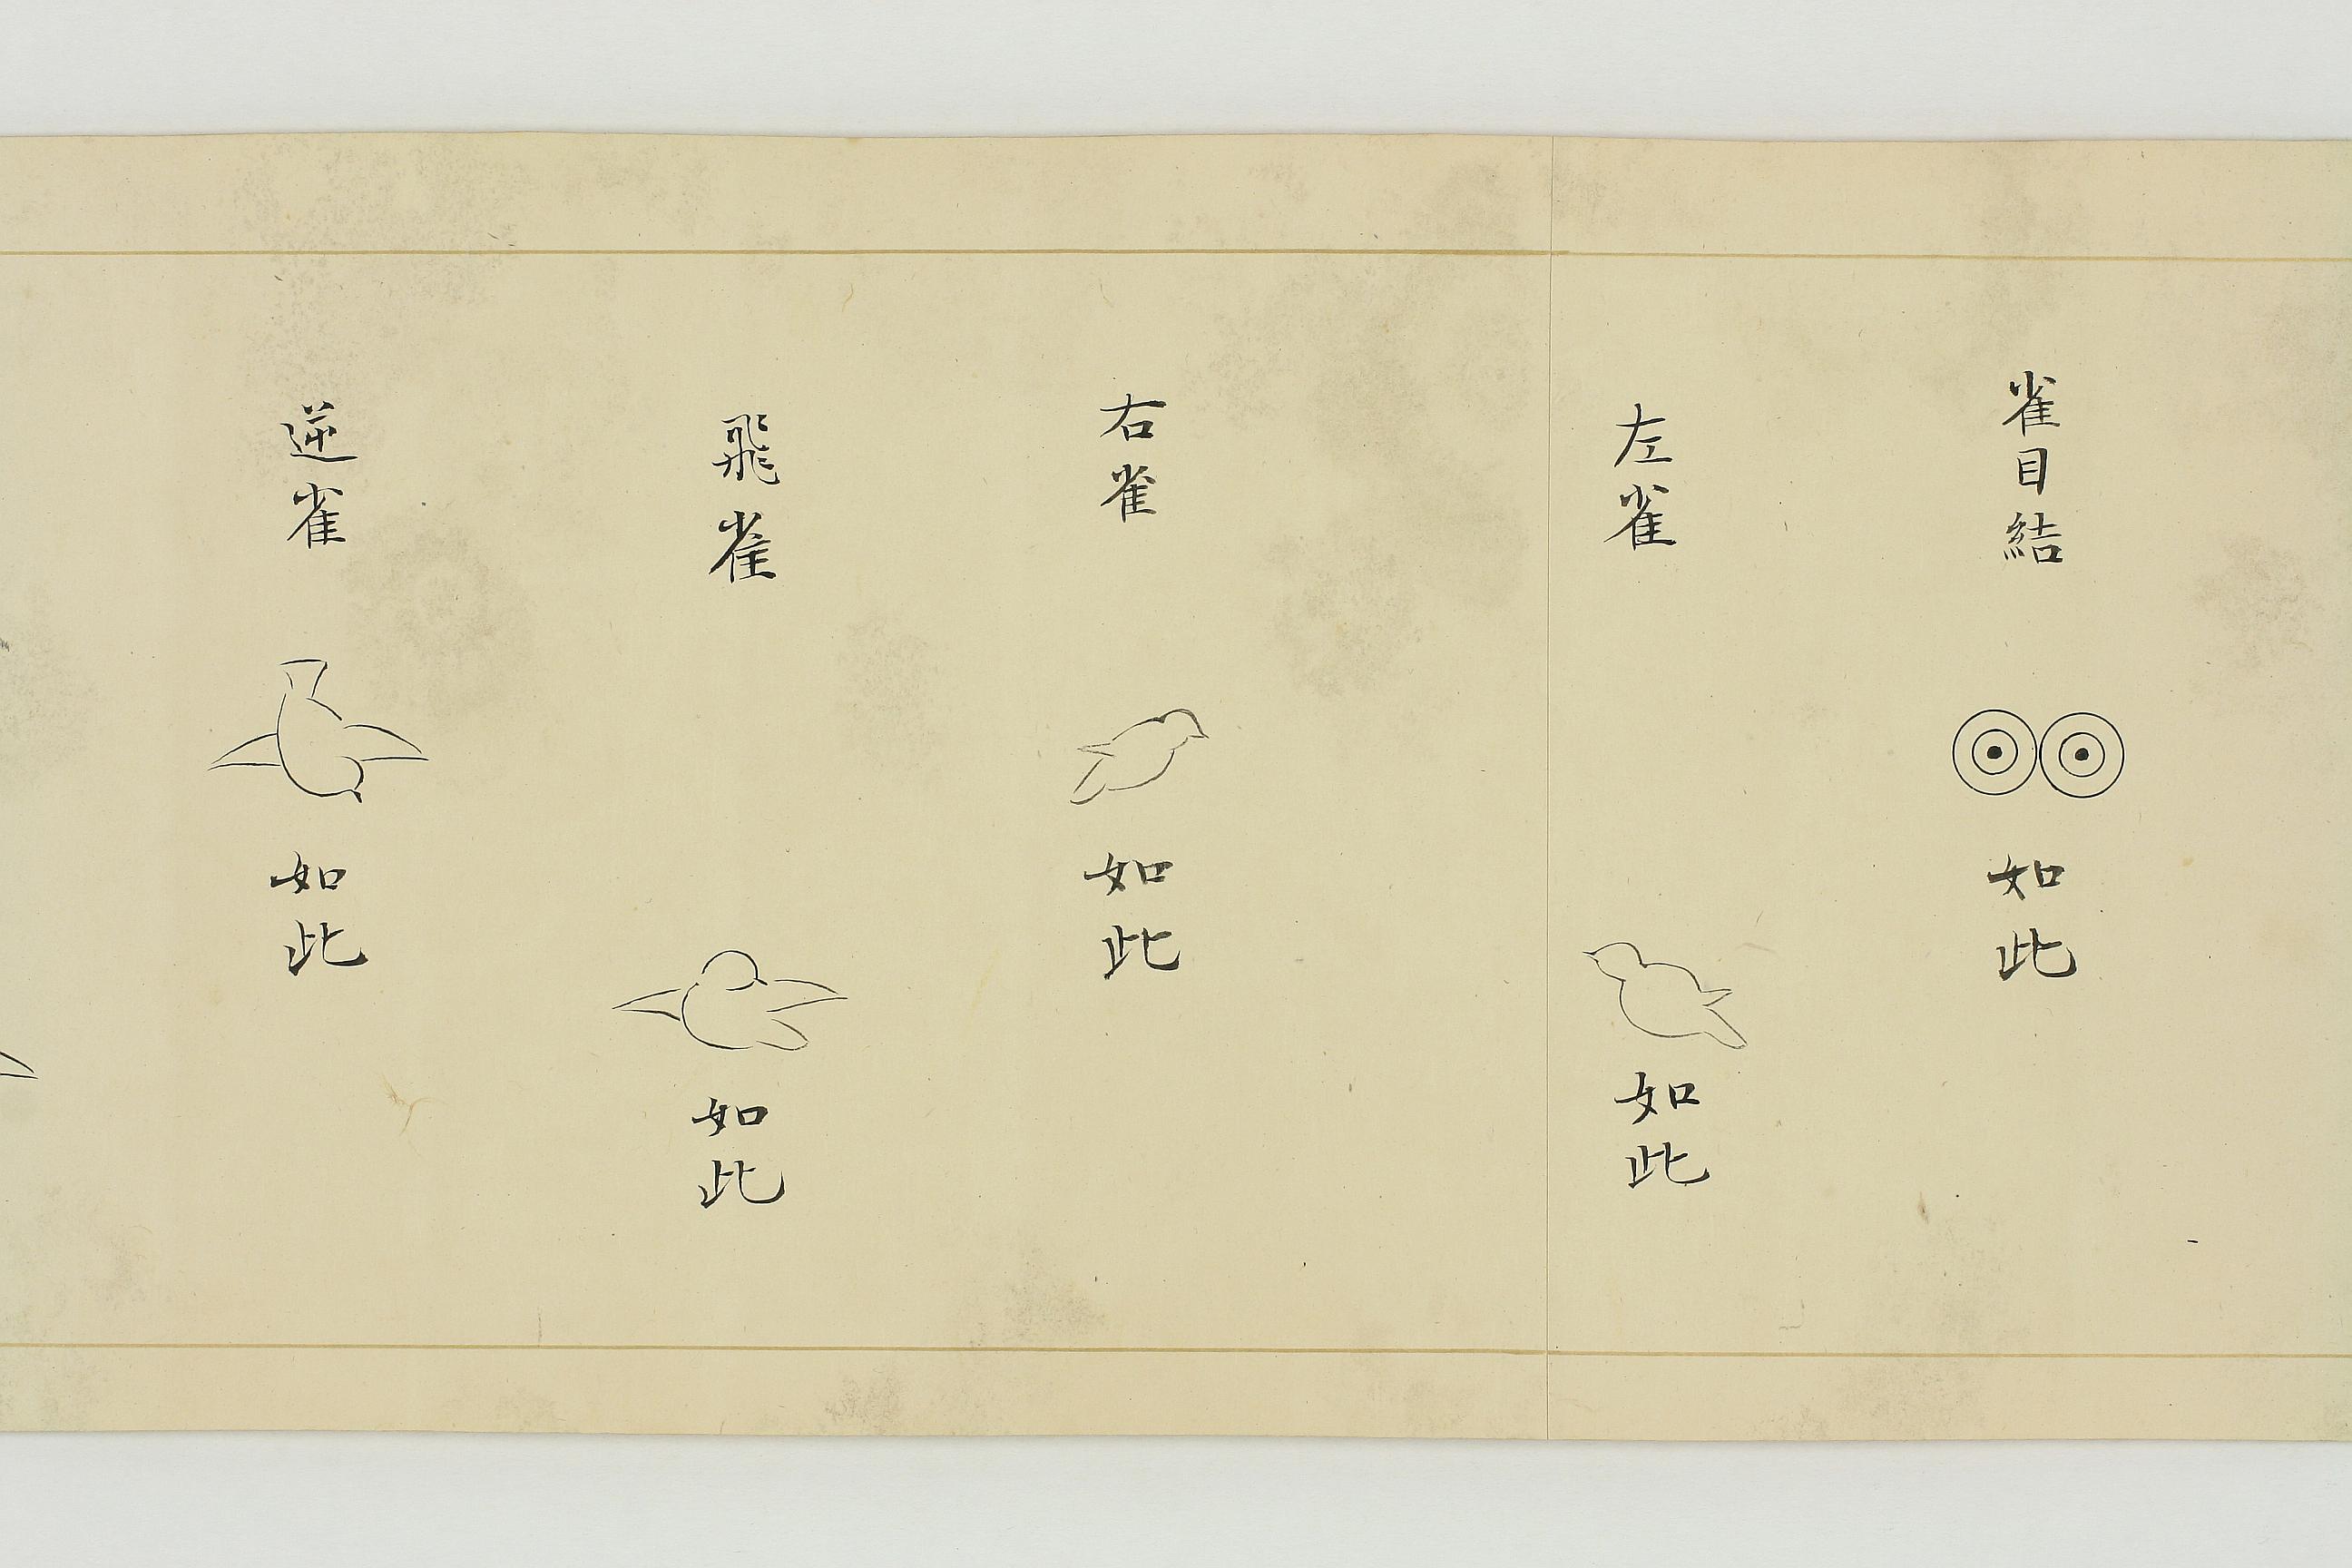 雀目結
如此
左雀
如此
右雀
如此
飛雀
如此
逆雀
如此